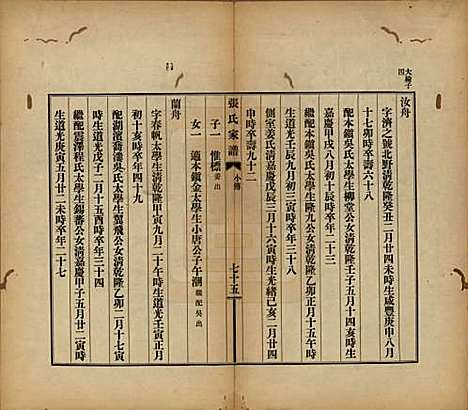 大榆子
四
汝舟
字濟之號北野清乾隆癸丑二月廿四未時生咸豐庚申八月
十七卯時卒壽六十八
配本鎮吳氏太學生柳堂公女清乾隆壬子五月廿六未時生
嘉慶甲戌八月初十辰時卒年二十三
繼配本鎮吳氏太學生隆九公女清乾隆乙卯正月十五午時
生道光壬辰九月初三寅時卒年三十八
側室姜氏清嘉慶戊辰三月十六寅時生光緒己亥二月廿四
申時卒壽九十二
張氏家譜
小傳
七十五
子一
惟標
姜出
女一
適本鎮金太學生小唐公子午潮
繼配吳出
蘭舟
字春帆太學生清乾隆甲寅九月二十午時生道光壬寅正月
初十亥時卒年四十九
配湖濱喬漊吳氏太學生翼飛公女清乾隆乙卯二月十七寅
時生道光戊子二月十五酉時卒年三十四
繼配震澤程氏太學生錫蕃公女清嘉慶甲子五月廿二寅時
生道光庚寅五月廿二未時卒年二十七